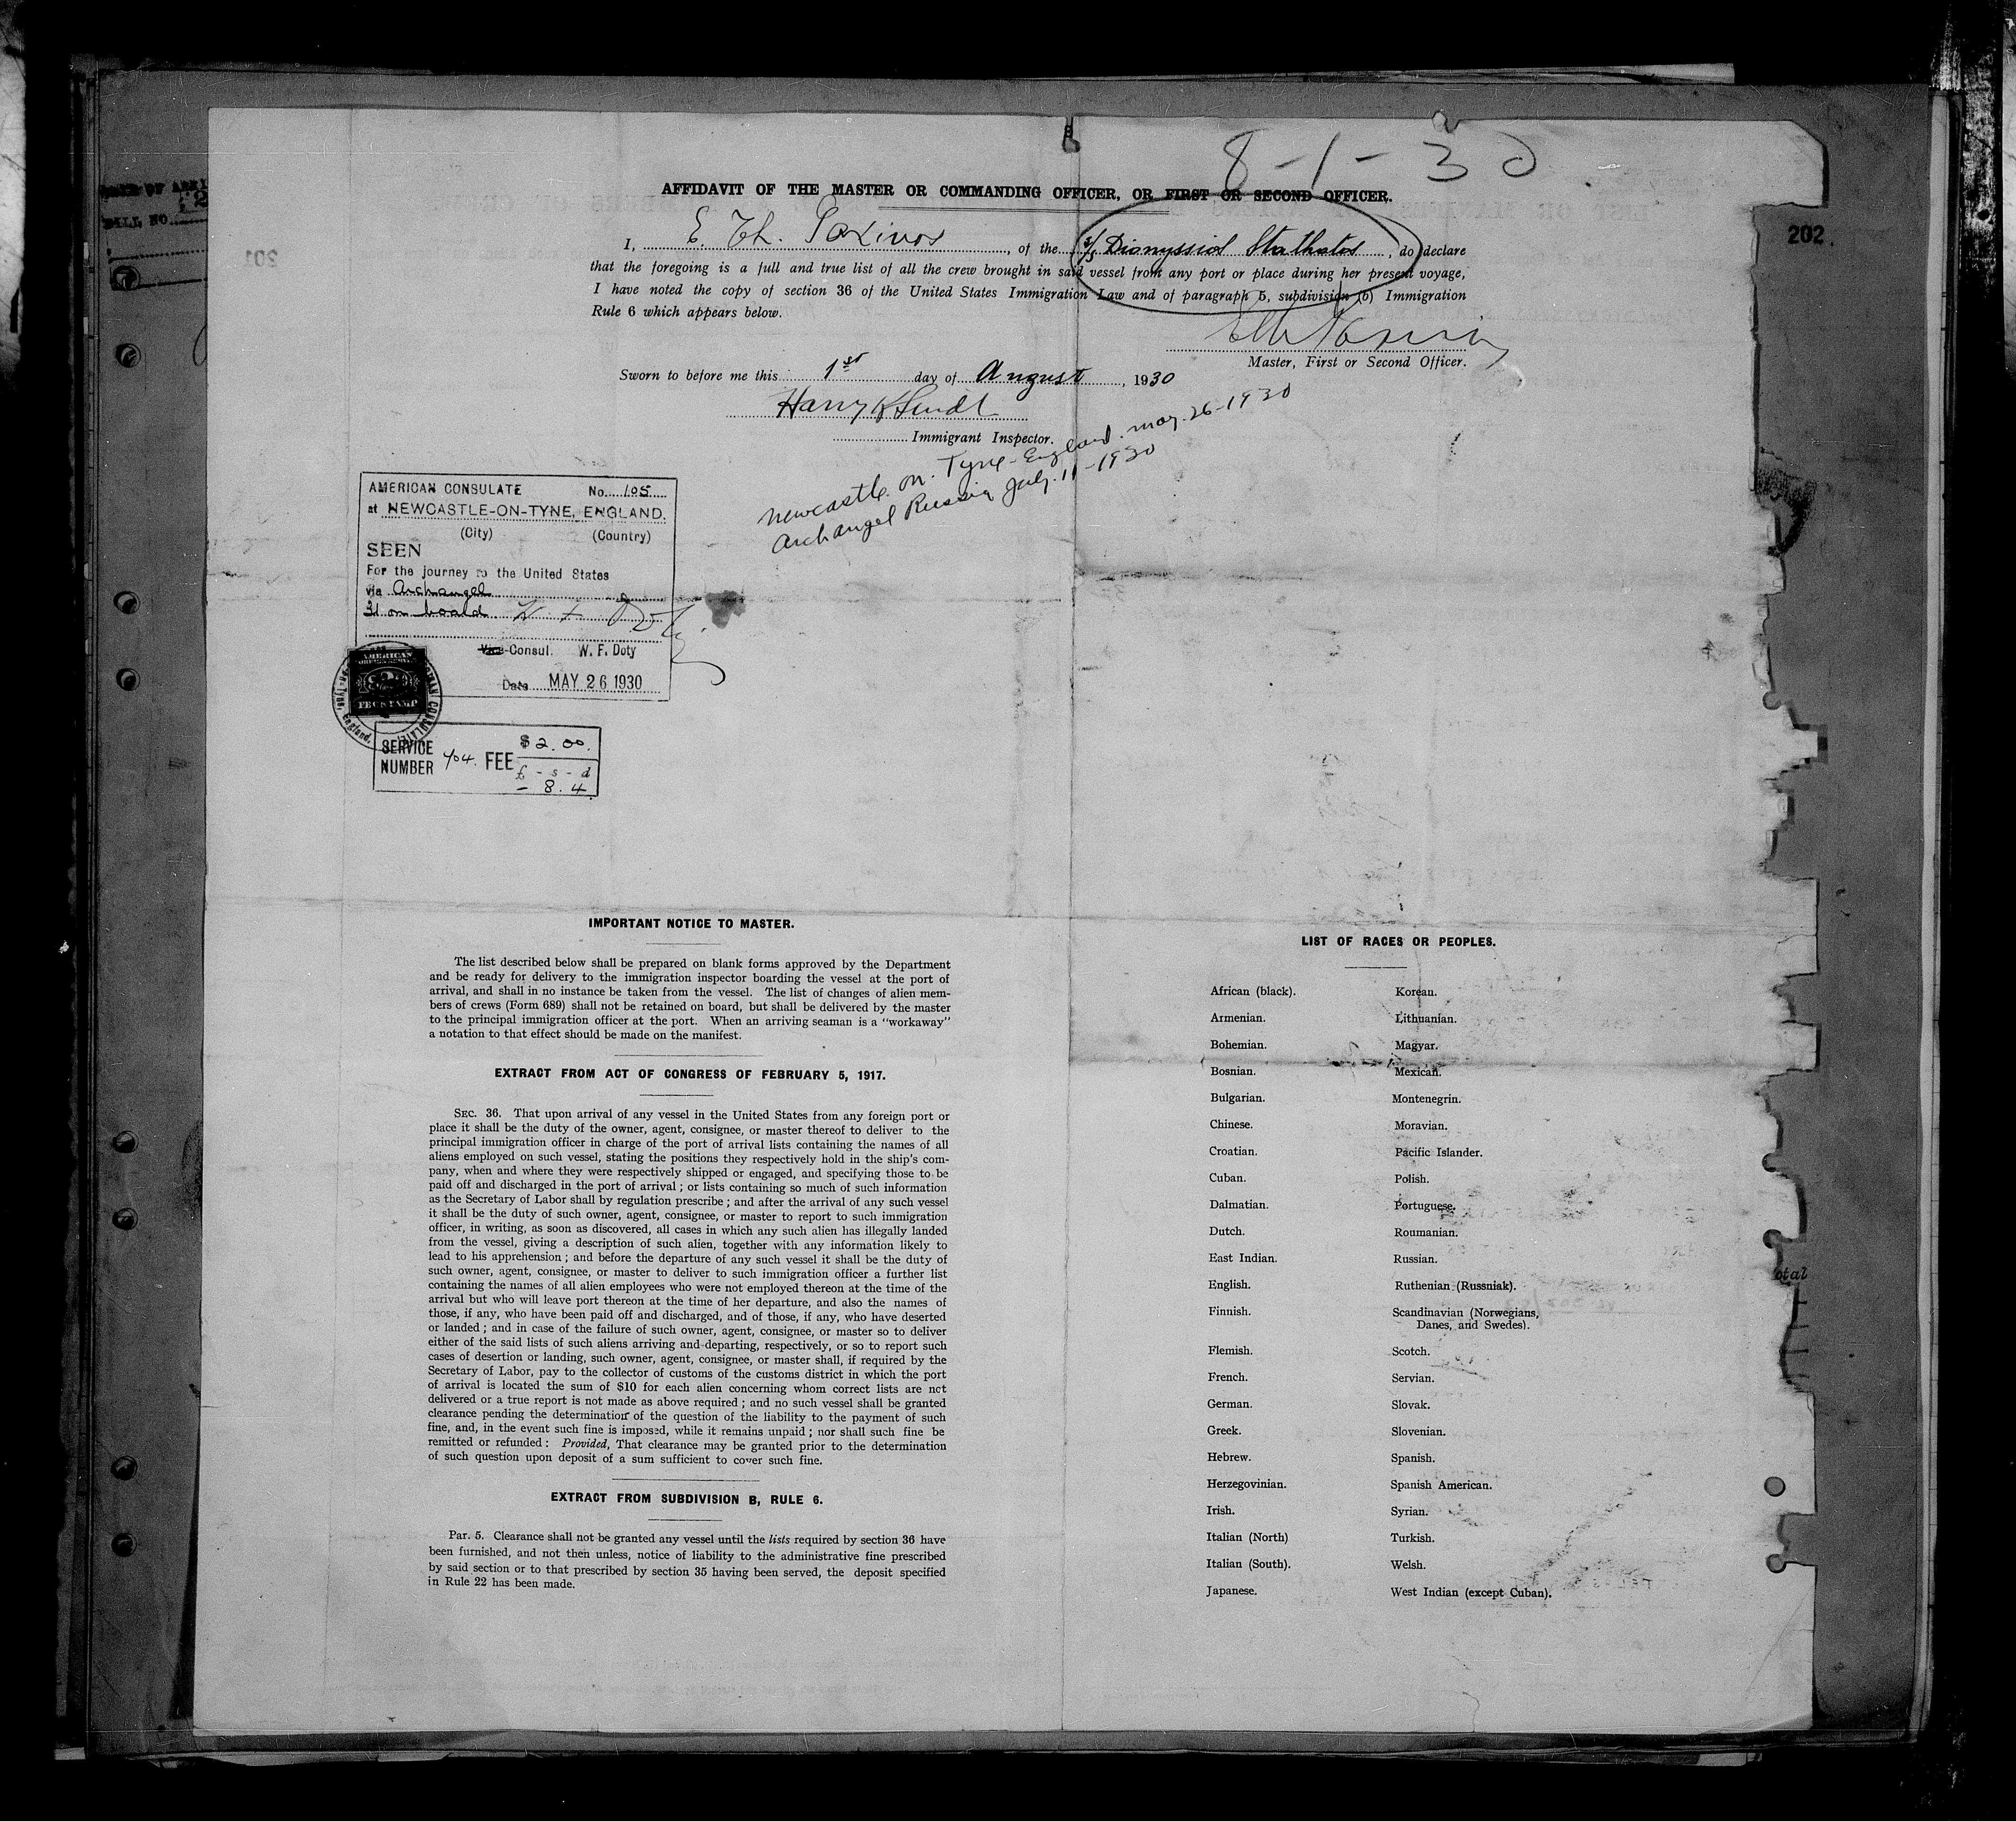 8-1-30
AFFIDAVIT OF THE MASTER OR COMMANDING OFFICER, OR FIRST OR SECOND OFFICER.
I, E. Th. , of the s/s Dionyssios Stathatos, do declare
that the foregoing is a full and true list of all the crew brought in said vessel from any port or place during her present voyage,
I have noted the copy of section 36 of the United States Immigration Law and of paragraph 5, subdivision (b) Immigration
Rule 6 which appears below.
Master, First or Second Officer.
Sworn to before me this 1st day of August, 1930
Harry
Immigrant Inspector.
Newcastle. on. Tyne-England. may. 26-1930
Archangel Russia July. 11-1930
202.
201
BILL NO.
AMERICAN CONSULATE No. 105
at NEWCASTLE-ON-TYNE, ENGLAND.
(City) (Country)
SEEN
For the journey to the United States
via Archangel
31 on board
Vice-Consul. W. F. Doty
Date MAY 26 1930
AMERICAN
2
FEE STAMP
SERVICE
NUMBER 704. FEE $2.00.
£ - s - d
- 8. 4
IMPORTANT NOTICE TO MASTER.
The list described below shall be prepared on blank forms approved by the Department
and be ready for delivery to the immigration inspector boarding the vessel at the port of
arrival, and shall in no instance be taken from the vessel. The list of changes of alien mem-
bers of crews (Form 689) shall not be retained on board, but shall be delivered by the master
to the principal immigration officer at the port. When an arriving seaman is a "workaway"
a notation to that effect should be made on the manifest.
EXTRACT FROM ACT OF CONGRESS OF FEBRUARY 5, 1917.
SEC. 36. That upon arrival of any vessel in the United States from any foreign port or
place it shall be the duty of the owner, agent, consignee, or master thereof to deliver to the
principal immigration officer in charge of the port of arrival lists containing the names of all
aliens employed on such vessel, stating the positions they respectively hold in the ship's com-
pany, when and where they were respectively shipped or engaged, and specifying those to be
paid off and discharged in the port of arrival; or lists containing so much of such information
as the Secretary of Labor shall by regulation prescribe; and after the arrival of any such vessel
it shall be the duty of such owner, agent, consignee, or master to report to such immigration
officer, in writing, as soon as discovered, all cases in which any such alien has illegally landed
from the vessel, giving a description of such alien, together with any information likely to
lead to his apprehension; and before the departure of any such vessel it shall be the duty of
such owner, agent, consignee, or master to deliver to such immigration officer a further list
containing the names of all alien employees who were not employed thereon at the time of the
arrival but who will leave port thereon at the time of her departure, and also the names of
those, if any, who have been paid off and discharged, and of those, if any, who have deserted
or landed; and in case of the failure of such owner, agent, consignee, or master so to deliver
either of the said lists of such aliens arriving and departing, respectively, or so to report such
cases of desertion or landing, such owner, agent, consignee, or master shall, if required by the
Secretary of Labor, pay to the collector of customs of the customs district in which the port
of arrival is located the sum of $10 for each alien concerning whom correct lists are not
delivered or a true report is not made as above required; and no such vessel shall be granted
clearance pending the determination of the question of the liability to the payment of such
fine, and, in the event such fine is imposed, while it remains unpaid; nor shall such fine be
remitted or refunded: Provided, That clearance may be granted prior to the determination
of such question upon deposit of a sum sufficient to cover such fine.
EXTRACT FROM SUBDIVISION B, RULE 6.
Par. 5. Clearance shall not be granted any vessel until the lists required by section 36 have
been furnished, and not then unless, notice of liability to the administrative fine prescribed
by said section or to that prescribed by section 35 having been served, the deposit specified
in Rule 22 has been made.
LIST OF RACES OR PEOPLES.
African (black). Korean.
Armenian. Lithuanian.
Bohemian. Magyar.
Bosnian. Mexican.
Bulgarian. Montenegrin.
Chinese. Moravian.
Croatian. Pacific Islander.
Cuban. Polish.
Dalmatian. Portuguese.
Dutch. Roumanian.
East Indian. Russian.
English. Ruthenian (Russniak).
Finnish. Scandinavian (Norwegians,
Danes, and Swedes).
Flemish. Scotch.
French. Servian.
German. Slovak.
Greek. Slovenian.
Hebrew. Spanish.
Herzegovinian. Spanish American.
Irish. Syrian.
Italian (North) Turkish.
Italian (South). Welsh.
Japanese. West Indian (except Cuban).
otal